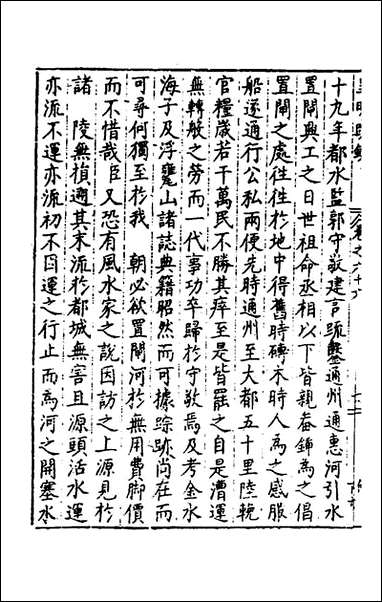 十九年都水監郭守敬建言疏鑿通州通惠河引水
置閘興工之日世祖命丞相以下皆親畚鍤為之倡
置閘之處徃徃於地中得舊時磚木時人為之感服
船遂通行公私兩便先時通州至大都五十里陸輓
官糧歲若干萬民不勝其瘁至是皆罷之自是漕運
無轉般之勞而一代事功卒歸於守敬焉及考金水
海子及浮甕山諸誌典籍昭然而可據踪跡尚在而
可尋何獨至於我 朝必欲置閘河於無用費脚價
而不惜哉臣又恐有風水家之說因訪之上源見於
諸 陵無楨遏其末流於都城無害且源頭活水運
亦流不運亦流初不因運之行止而為河之開塞水